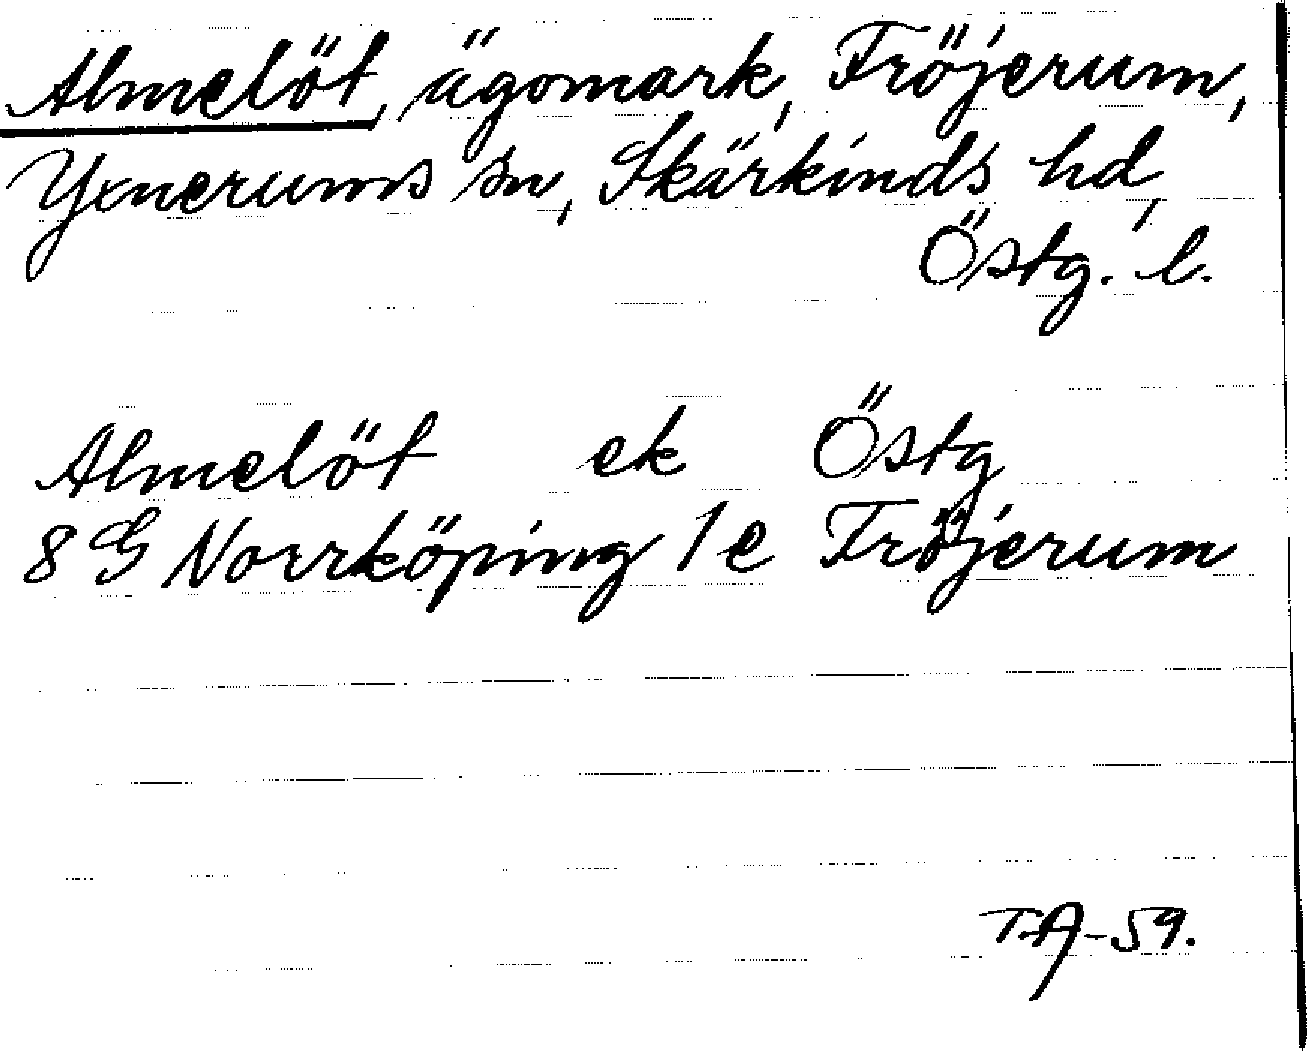 Almelöt, ägomark, Fröjerum,
Yxnerums sn, Skärkinds hd,
Östg. l.
Almelöt ek Östg
8 G Norrköping 1 e Fröjerum
T.A-59.